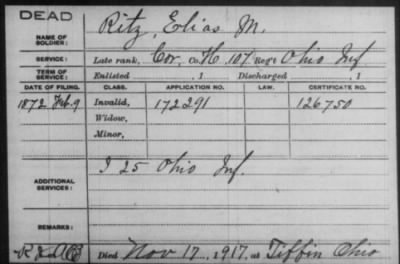 DEAD
NAME OF SOLDIER: Ritz, Elias M.
SERVICE: Late rank, Cor, Co. H. 107 Reg't Ohio Inf
TERM OF SERVICE: Enlisted , 1 Discharged , 1
DATE OF FILING. CLASS. APPLICATION NO. LAW. CERTIFICATE NO.
1872 Feb. 9 Invalid, 172291 126750
Widow,
Minor,
ADDITIONAL SERVICES: I 25 Ohio Inf.
REMARKS:
Died Nov 17, 1917, at Tiffin Ohio